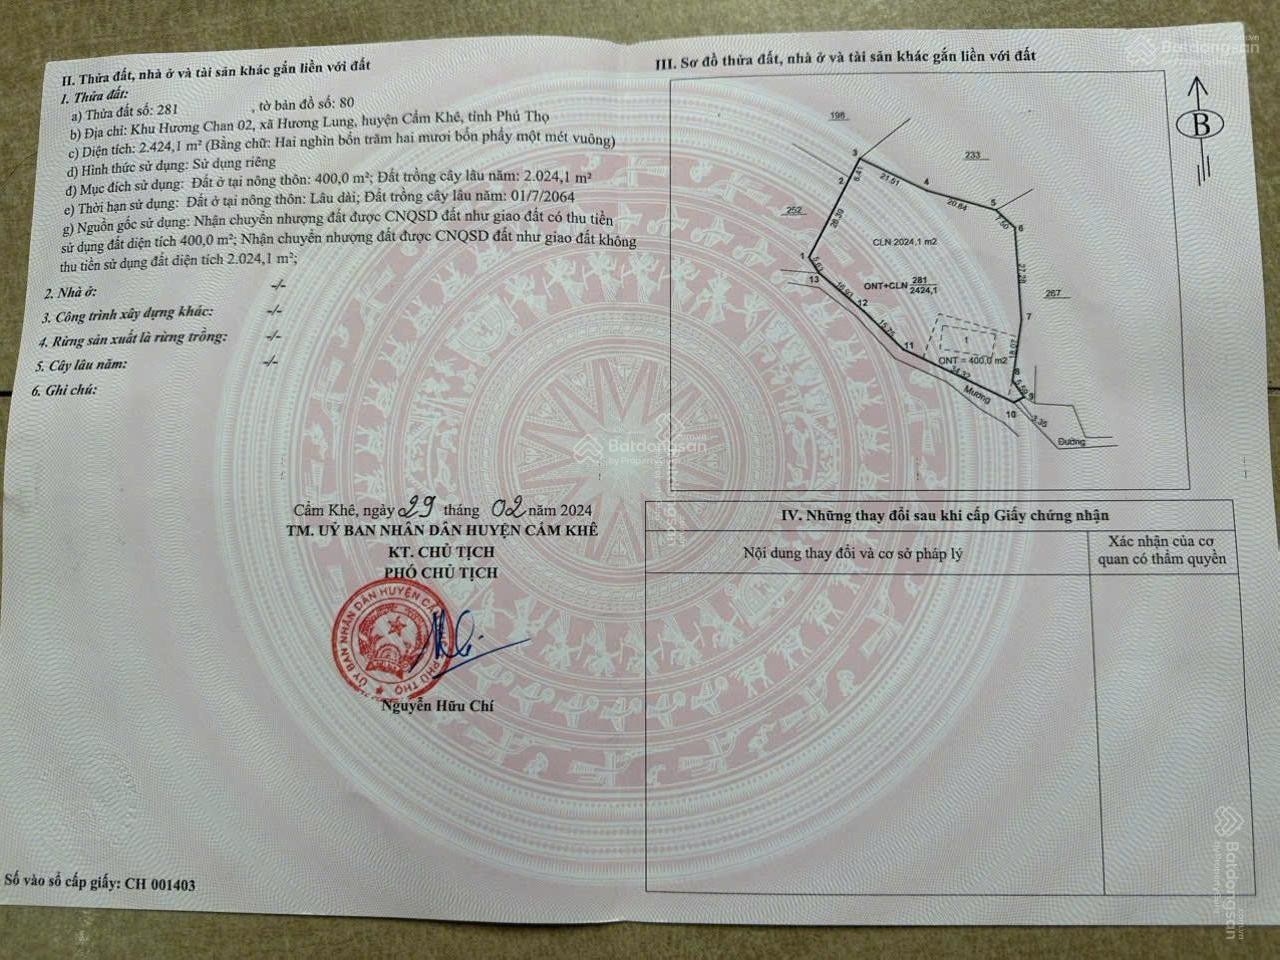 II. Thửa đất, nhà ở và tài sản khác gắn liền với đất
1. Thửa đất:
a) Thửa đất số: 281 , tờ bản đồ số: 80
b) Địa chỉ: Khu Hương Chan 02, xã Hương Lung, huyện Cẩm Khê, tỉnh Phú Thọ
c) Diện tích: 2.424,1 m² (Bằng chữ: Hai nghìn bốn trăm hai mươi bốn phẩy một mét vuông)
d) Hình thức sử dụng: Sử dụng riêng
đ) Mục đích sử dụng: Đất ở tại nông thôn: 400,0 m²; Đất trồng cây lâu năm: 2.024,1 m²
e) Thời hạn sử dụng: Đất ở tại nông thôn: Lâu dài; Đất trồng cây lâu năm: 01/7/2064
g) Nguồn gốc sử dụng: Nhận chuyển nhượng đất được CNQSD đất như giao đất có thu tiền
sử dụng đất diện tích 400,0 m²; Nhận chuyển nhượng đất được CNQSD đất như giao đất không
thu tiền sử dụng đất diện tích 2.024,1 m²;
2. Nhà ở: -/-
3. Công trình xây dựng khác: -/-
4. Rừng sản xuất là rừng trồng: -/-
5. Cây lâu năm: -/-
6. Ghi chú:
Cẩm Khê, ngày 29 tháng 02 năm 2024
TM. UỶ BAN NHÂN DÂN HUYỆN CẨM KHÊ
KT. CHỦ TỊCH
PHÓ CHỦ TỊCH
ỦY BAN NHÂN DÂN HUYỆN
PHÚ THỌ
Nguyễn Hữu Chí
Số vào sổ cấp giấy: CH 001403
III. Sơ đồ thửa đất, nhà ở và tài sản khác gắn liền với đất
B
196
233
252
267
3
21.51
4
20.64
5
7.50
6
27.28
7
18.07
8
5.59
9
10
3.35
34.32
11
15.75
12
16.93
13
5.63
1
28.39
2
6.41
CLN 2024,1 m2
ONT+CLN 281
2424,1
1
ONT = 400,0 m2
Mương
Đường
IV. Những thay đổi sau khi cấp Giấy chứng nhận
Nội dung thay đổi và cơ sở pháp lý
Xác nhận của cơ
quan có thẩm quyền
Batdongsan
Batdongsan
by PropertyGuru
Batdongsan